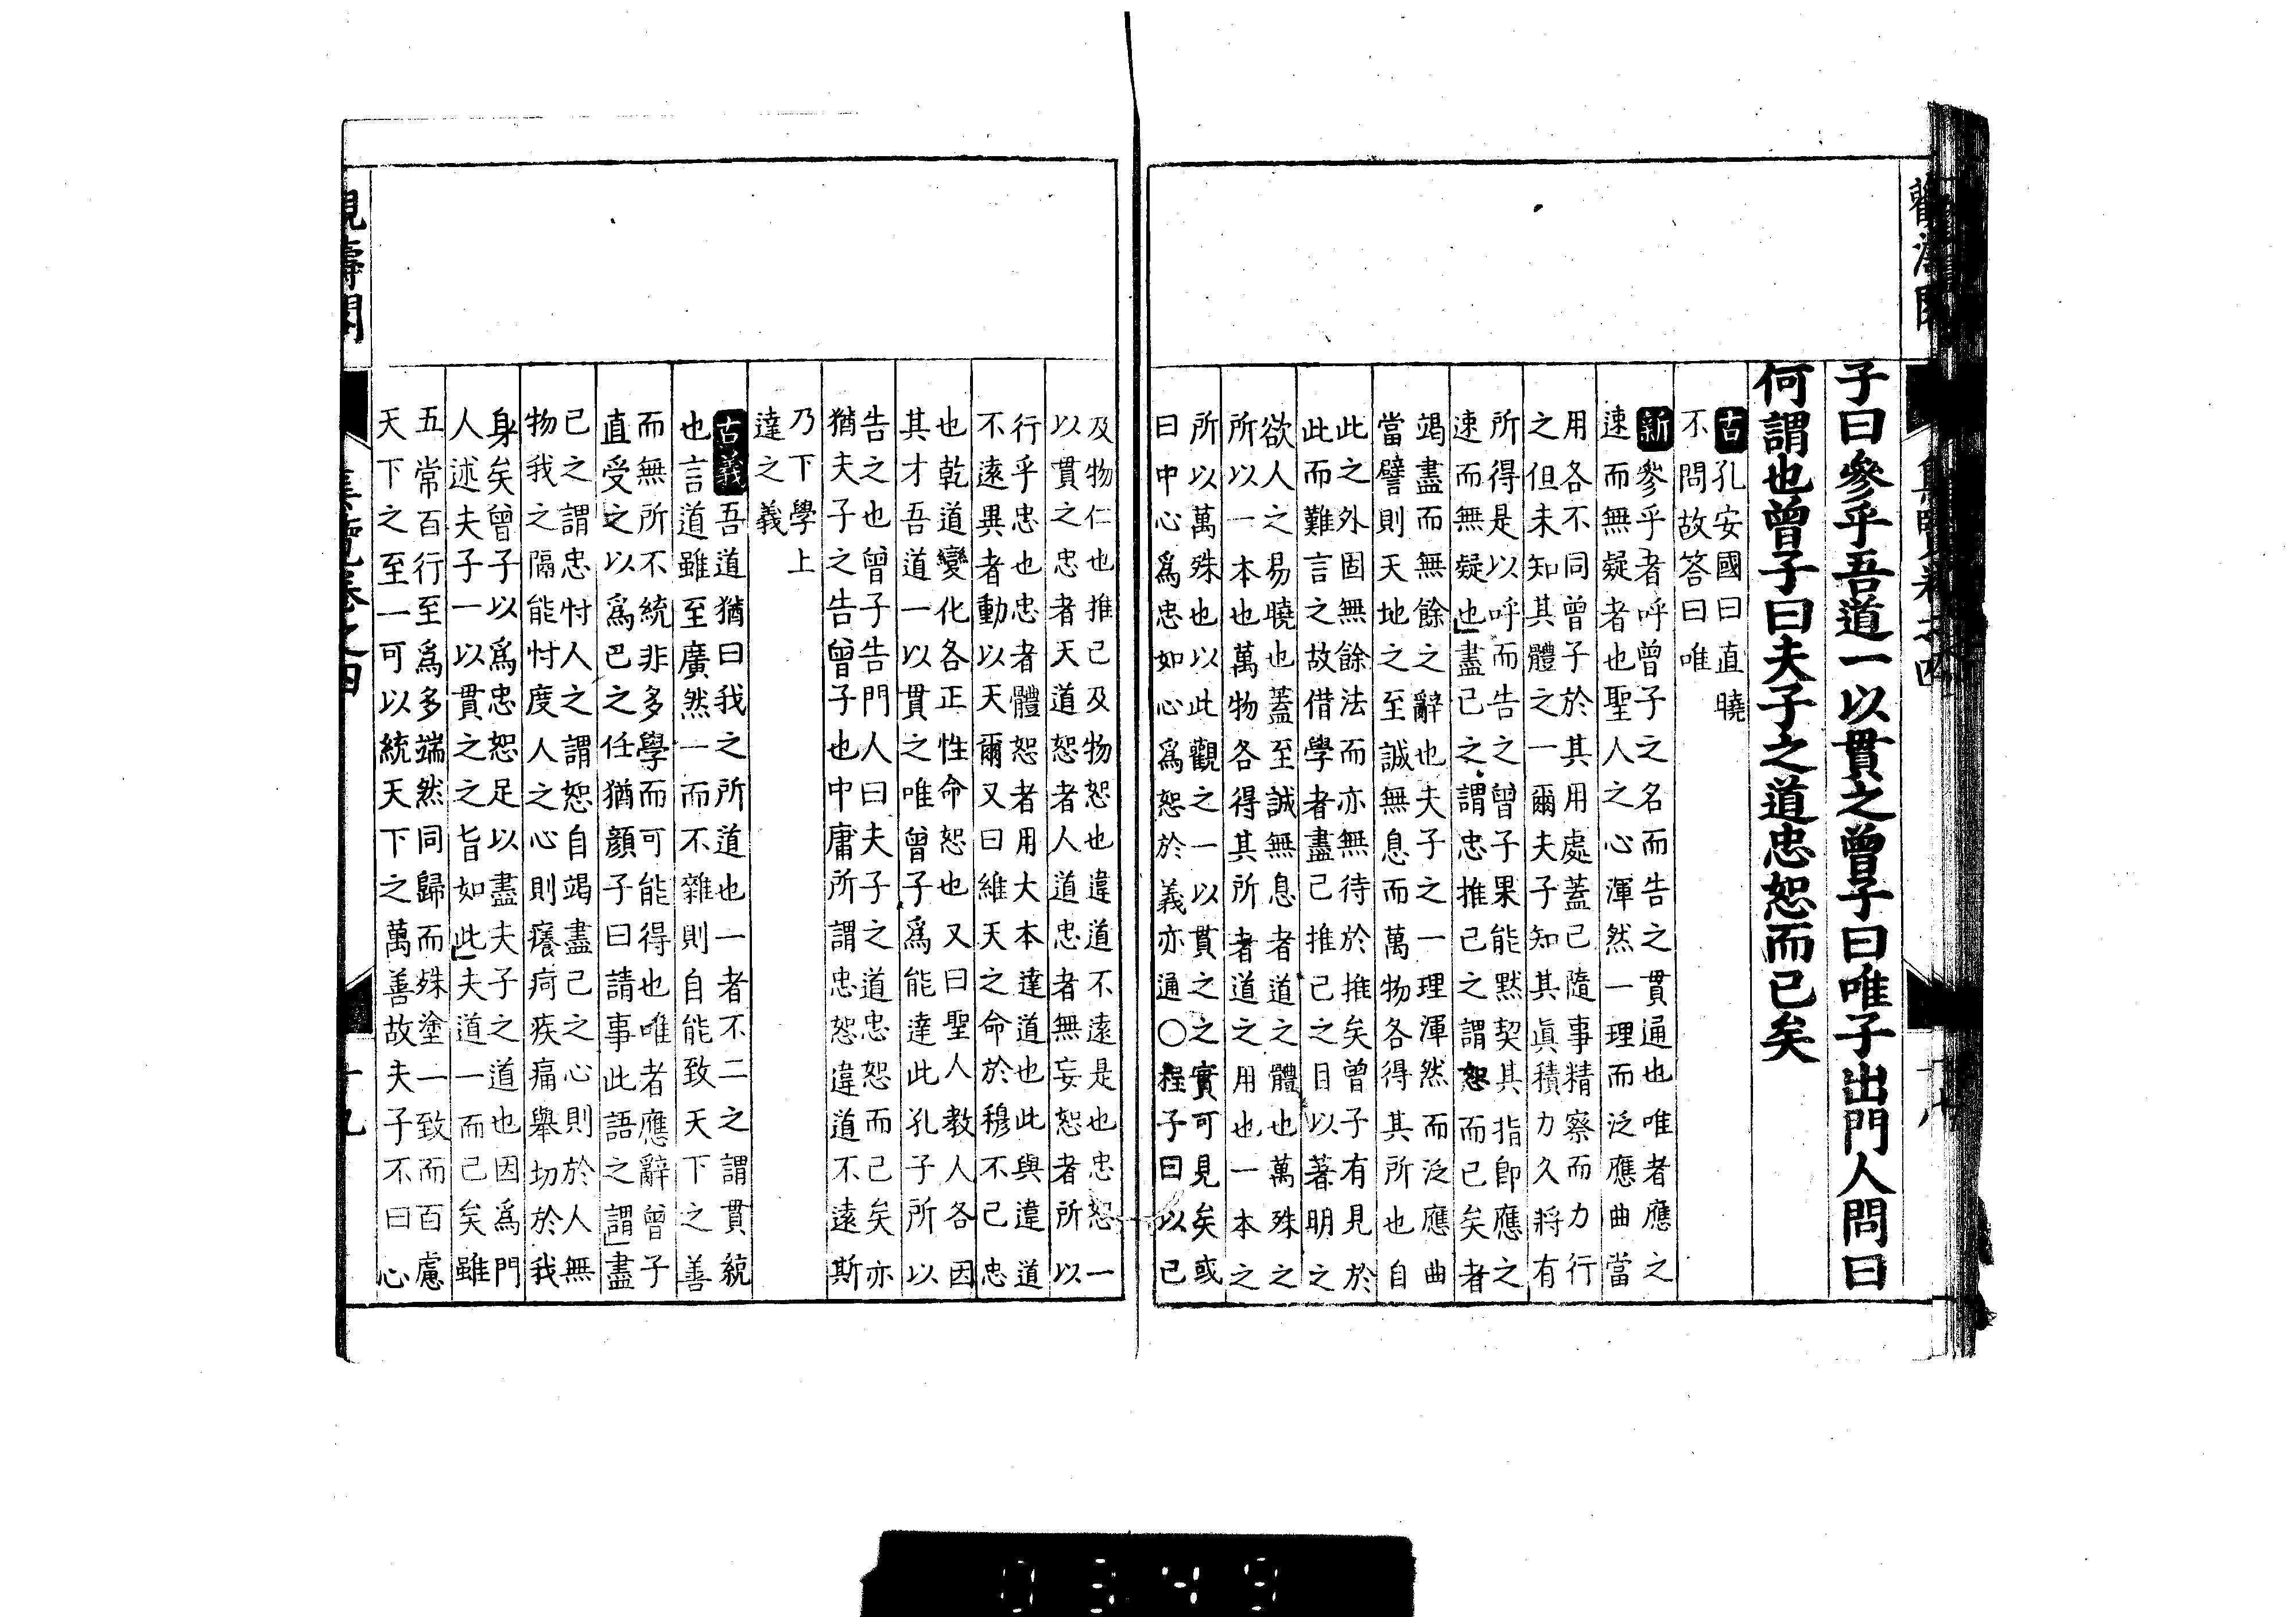 子曰參乎吾道一以貫之曾子曰唯子出門人問曰
何謂也曾子曰夫子之道忠恕而已矣
古 孔安國曰直曉
不問故答曰唯
新 參乎者呼曾子之名而告之貫通也唯者應之
速而無疑者也聖人之心渾然一理而泛應曲當
用各不同曾子於其用處蓋已隨事精察而力行
之但未知其體之一爾夫子知其真積力久將有
所得是以呼而告之曾子果能默契其指即應之
速而無疑也盡己之謂忠推己之謂恕而已矣者
竭盡而無餘之辭也夫子之一理渾然而泛應曲
當譬則天地之至誠無息而萬物各得其所也自
此之外固無餘法而亦無待於推矣曾子有見於
此而難言之故借學者盡己推己之目以著明之
欲人之易曉也蓋至誠無息者道之體也萬殊之
所以一本也萬物各得其所者道之用也一本之
所以萬殊也以此觀之一以貫之之實可見矣或
曰中心為忠如心為恕於義亦通○程子曰以己
及物仁也推己及物恕也違道不遠是也忠恕一
以貫之忠者天道恕者人道忠者無妄恕者所以
行乎忠也忠者體恕者用大本達道也此與違道
不遠異者動以天爾又曰維天之命於穆不已忠
也乾道變化各正性命恕也又曰聖人教人各因
其才吾道一以貫之唯曾子為能達此孔子所以
告之也曾子告門人曰夫子之道忠恕而已矣亦
猶夫子之告曾子也中庸所謂忠恕違道不遠斯
乃下學上
達之義
古義 吾道猶曰我之所道也一者不二之謂貫統
也言道雖至廣然一而不雜則自能致天下之善
而無所不統非多學而可能得也唯者應辭曾子
直受之以為己之任猶顏子曰請事此語之謂盡
己之謂忠忖人之謂恕自竭盡己之心則於人無
物我之隔能忖度人之心則癢疴疾痛舉切於我
身矣曾子以為忠恕足以盡夫子之道也因為門
人述夫子一以貫之之旨如此夫道一而已矣雖
五常百行至為多端然同歸而殊塗一致而百慮
天下之至一可以統天下之萬善故夫子不曰心